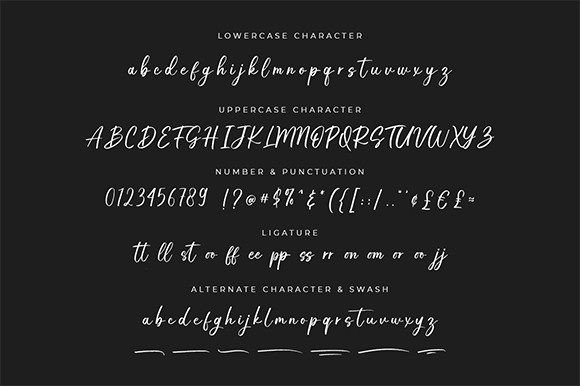 LOWERCASE CHARACTER
abcdefghijklmnopqrstuvwxyz
UPPERCASE CHARACTER
ABCDEFGHIJKLMNOPQRSTUVWXYZ
NUMBER & PUNCTUATION
0123456789 !?@#$%^&*({[:;/,.."'¢£€£≈
LIGATURE
tt ll st oo ff ee pp ss rr on om or oo jj
ALTERNATE CHARACTER & SWASH
abcdefghijklmnopqrstuvwxyz